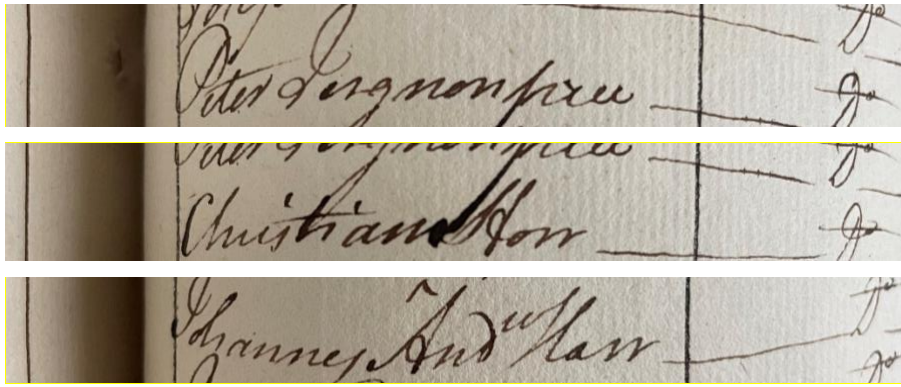 Peter Dergnonpree Do
Christian Horr Do
Johannes And^w Harr Do